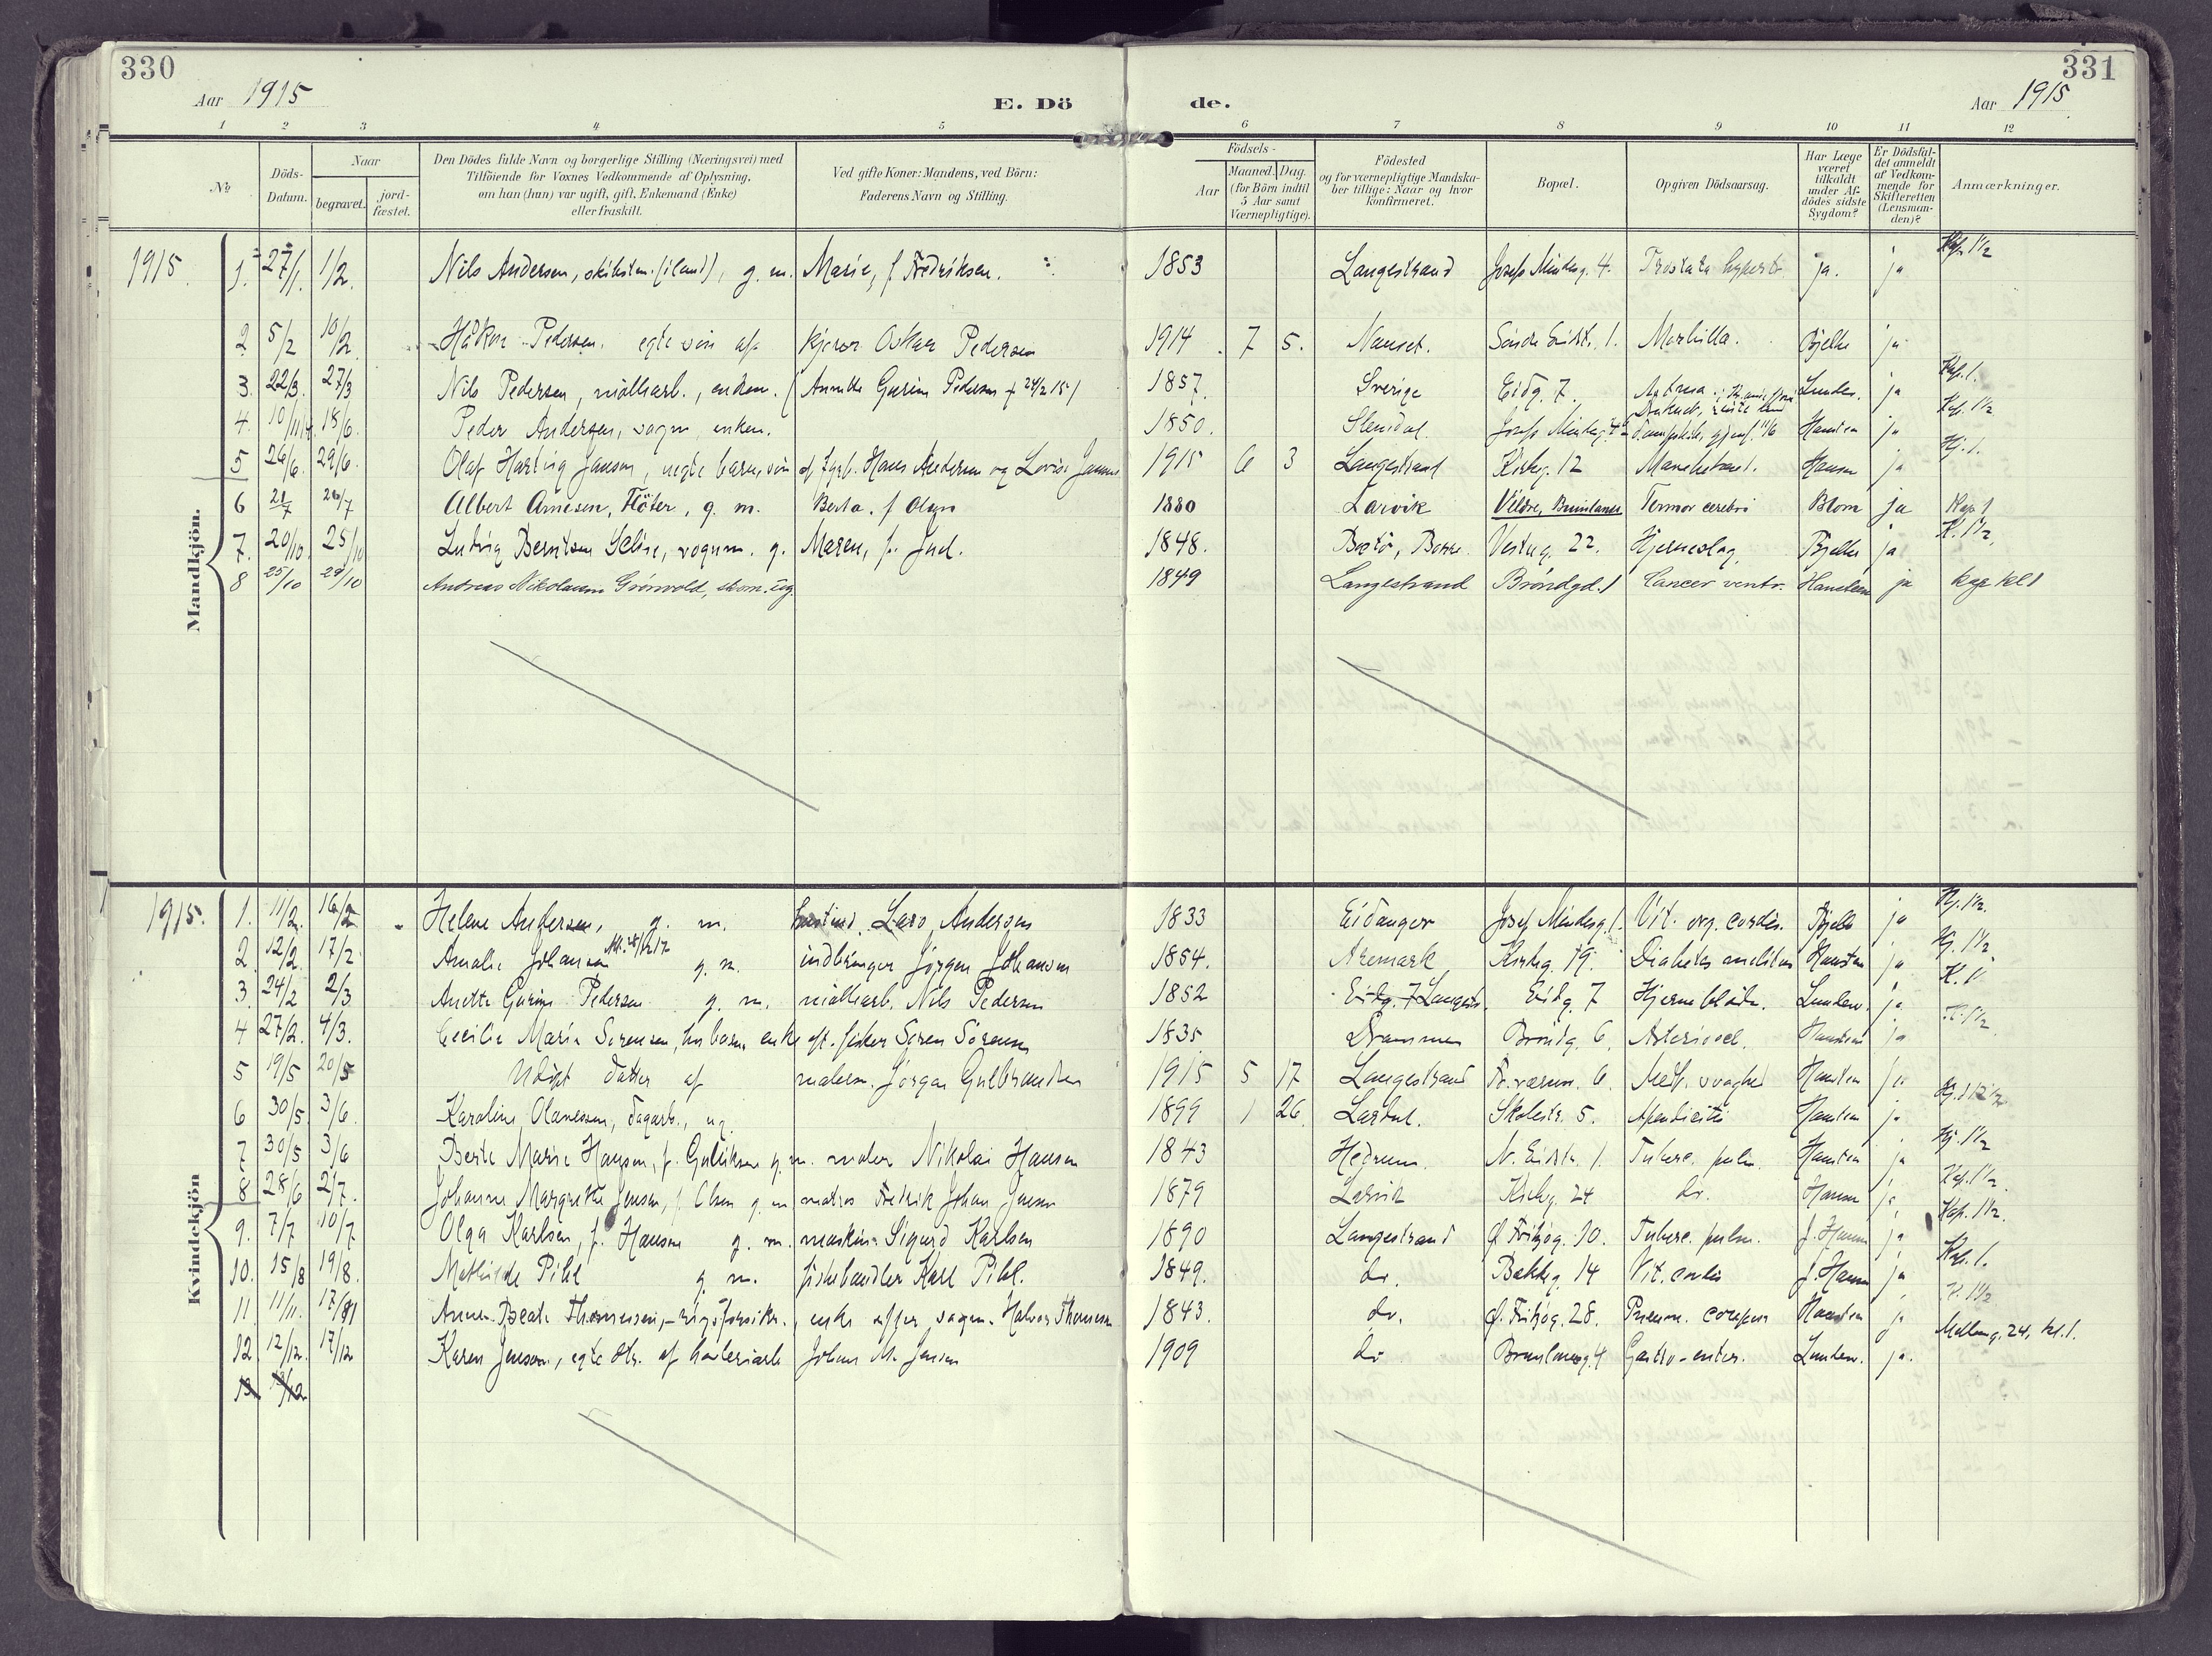 330
Aar 1915
E. Dö
de.
Aar 1915
331
1 2 3 4 5 6 7 8 9 10 11 12
No
Döds-
Datum.
Naar
begravet.
jord-
fæstet.
Den Dödes fulde Navn og borgerlige Stilling (Næringsvei) med
Tilföiende for Voxnes Vedkommende af Oplysning,
om han (hun) var ugift, gift, Enkemand (Enke)
eller fraskilt.
Ved gifte Koner: Mandens, ved Börn:
Faderens Navn og Stilling.
Födsels-
Aar
Maaned.
Dag.
(for Börn indtil
5 Aar samt
Værnepligtige).
Födested
og for værnepligtige Mandska-
ber tillige: Naar og hvor
konfirmeret.
Bopæl.
Opgiven Dödsaarsag.
Har Læge
været
tilkaldt
under Af-
dödes sidste
Sygdom?
Er Dödsfal-
det anmeldt
af Vedkom-
mende for
Skifteretten
(Lensman-
den)?
Anmærkninger.
Mandkjön.
1915 1. 27/1. 1/2. Nils Andersen, (iland), g. m. Marie, f. Fredriksen. 1853 Langestrand Josefs Mindeg. 4. Prostata hypert. ja. ja Kap. 1 1/2
2 5/2 10/2 Håkon Pedersen, egte sön af kjører Oskar Pedersen 1914 7 5. Nanset. Söndre Eidstr. 1. Morbilla. Bjelke ja
3. 22/3. 27/3 Nils Pedersen, möllearb., enkem. (Anette Gurine Pedersen † 24/2 15) 1857. Sverige Eidg. 7. Lunden. ja Kap. 1.
4. 10/11 14 15/6. Peder Andersen, vogm, enkem. 1850. Slemdal. Josefs Mindeg. Hansteen ja Kap. 1 1/2
5 26/6. 29/6. Olaf Hartvig Jansen, uegte barn, sön af Hans Andersen og Lovise Jansen 1915 6 3 Langestrand Kirkeg. 12 Hansen ja Kj. 1.
6 21/7 26/7 Albert Arnesen, Flöter, g. m. Berta. f. Olsen 1880 Larvik Veldre, Brunlanes Tumor cerebri Blom ja Kap 1
7. 20/10. 25/10 Ludvig Berntsen, vognm. g. Maren, f. Juel. 1848. Borre. Vestreg. 22. Hjerneslag, Bjelke ja K. 1 1/2.
8 25/10 29/10 Andreas Nikolaisen Grönvold, skom. ug. 1849 Langestrand Bröndgd. 1 Cancer ventr. Hansteen ja kap kl 1
Kvindekjön
1915. 1. 11/2. 16/2 Helene Andersen, g. m. Lars Andersen 1833 Eidanger Josef Mindesg. 1. Vit. org. cordis. Bjelke ja Kj. 1 1/2.
2. 12/2. 17/2. Amalie Johansen g. m. indbringer Jörgen Johansen 1854. Aremark Kirkeg. 19. Diabetes mellitus Hansteen ja Kj. 1 1/2
3. 24/2 2/3 Anette Gurine Pedersen g. m. möllearb. Nils Pedersen 1852 Eidg. 7 Langestr. Eidg. 7 Lunden. ja K. 1
4 27/2. 4/3. Cecilie Marie Sörensen, enke eft. fisker Sören Sörensen 1835 Drammen Bröndg. 6. Arterioscl. Hansteen ja K. 1 1/2
5 19/5 20/5 Udöpt datter af Jörgen Gulbrandsen 1915 5 17 Langestrand 6. Medf. svaghed Hansteen ja
6 30/5. 3/6. Karoline Olaussen, dagarb., ug. 1899 1 26. Skolestr. 5. Apendicitis Hansteen ja
7 30/5 3/6 Berte Marie Hansen, f. Gulliksen g. m. maler Nikolai Hansen 1843 Hedrum. N. Eidstr. 1. Tuberc. pulm. Hansteen ja Kj. 1 1/2
8 28/6 2/7. Johanne Margrethe Jensen, f. Olsen g. m. matros Fredrik Johan Jensen 1879 Larvik Kirkeg. 24 do. Hansen ja Kap. 1 1/2.
9. 7/7 10/7 Olga Karlsen, f. Hansen g. m. maskin. Sigurd Karlsen 1890 Langestrand Ø. Fritzög. 10. Tuberc. pulm. J. Hansen ja Kap. 1 1/2.
10. 15/8 19/8. Mathilde Pihl g. m. fiskehandler Karl Pihl. 1849. do. Bakkeg. 14 Vit. cordis J. Hansen ja Kap. 1.
11. 11/11. 17/11 Anne Beate Thomessen, enke efter vogm. Halvor Thomessen 1843. do. Ø. Fritzög. 28. Pneum. Hansteen ja K. 1 1/2
12. 12/12. 17/12 Karen Jensen, egte dtr. af Johan M. Jensen 1909 do Brunlanesg. 4 Gastro-enter. Lunden. ja. Melleng. 24, kl. 1.